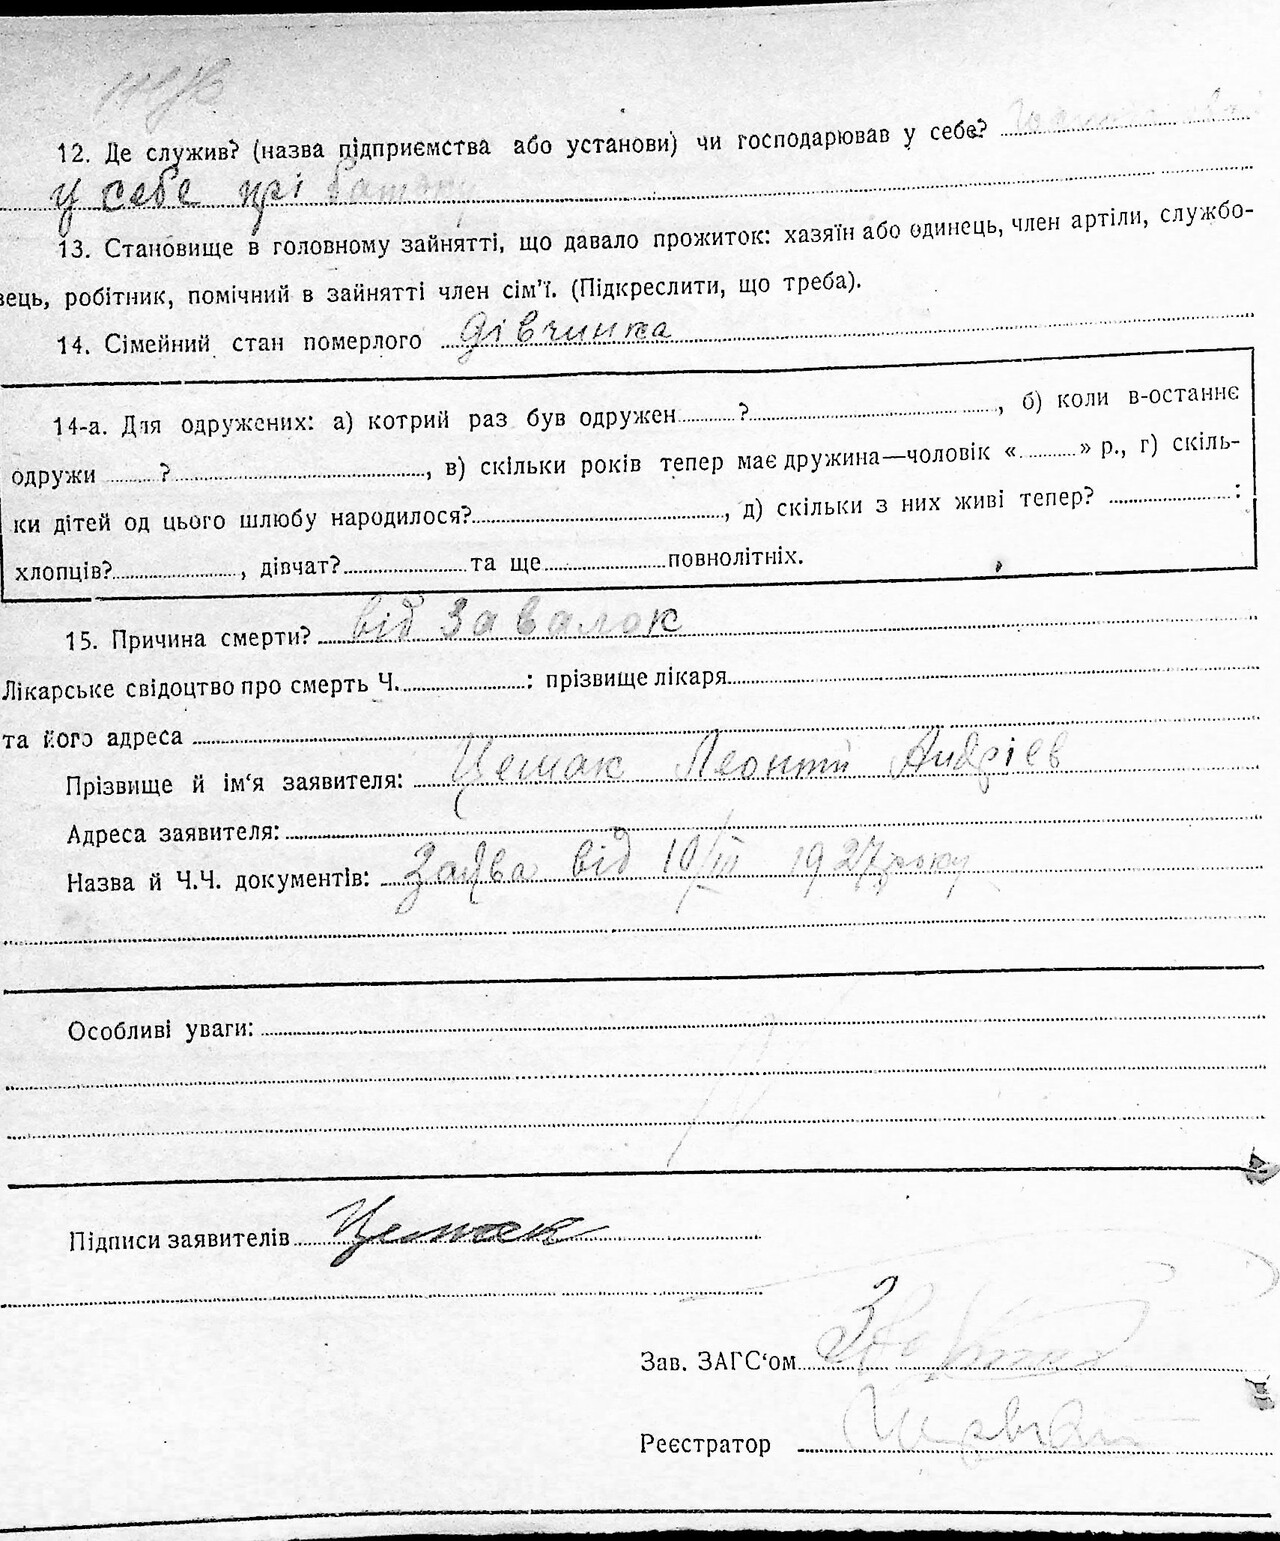 12. Де служив? (назва підприємства або установи) чи господарював у себе?
у себе прі батьку
13. Становище в головному зайнятті, що давало прожиток: хазяїн або одинець, член артіли, службо-
вець, робітник, помічний в зайнятті член сім'ї. (Підкреслити, що треба).
14. Сімейний стан померлого дівчинка
14-а. Для одружених: а) котрий раз був одружен ? , б) коли в-останнє
одружи ? , в) скільки років тепер має дружина—чоловік « » р., г) скіль-
ки дітей од цього шлюбу народилося? , д) скільки з них живі тепер? :
хлопців? , дівчат? та ще повнолітніх.
15. Причина смерти? від завалок
Лікарське свідоцтво про смерть Ч. : прізвище лікаря
та його адреса
Прізвище й ім'я заявителя: Цемак Леонтій Андріев
Адреса заявителя:
Назва й Ч.Ч. документів: Заява від 10/III 1927 року
Особливі уваги:
Підписи заявителів Цемак
Зав. ЗАГС'ом
Реєстратор